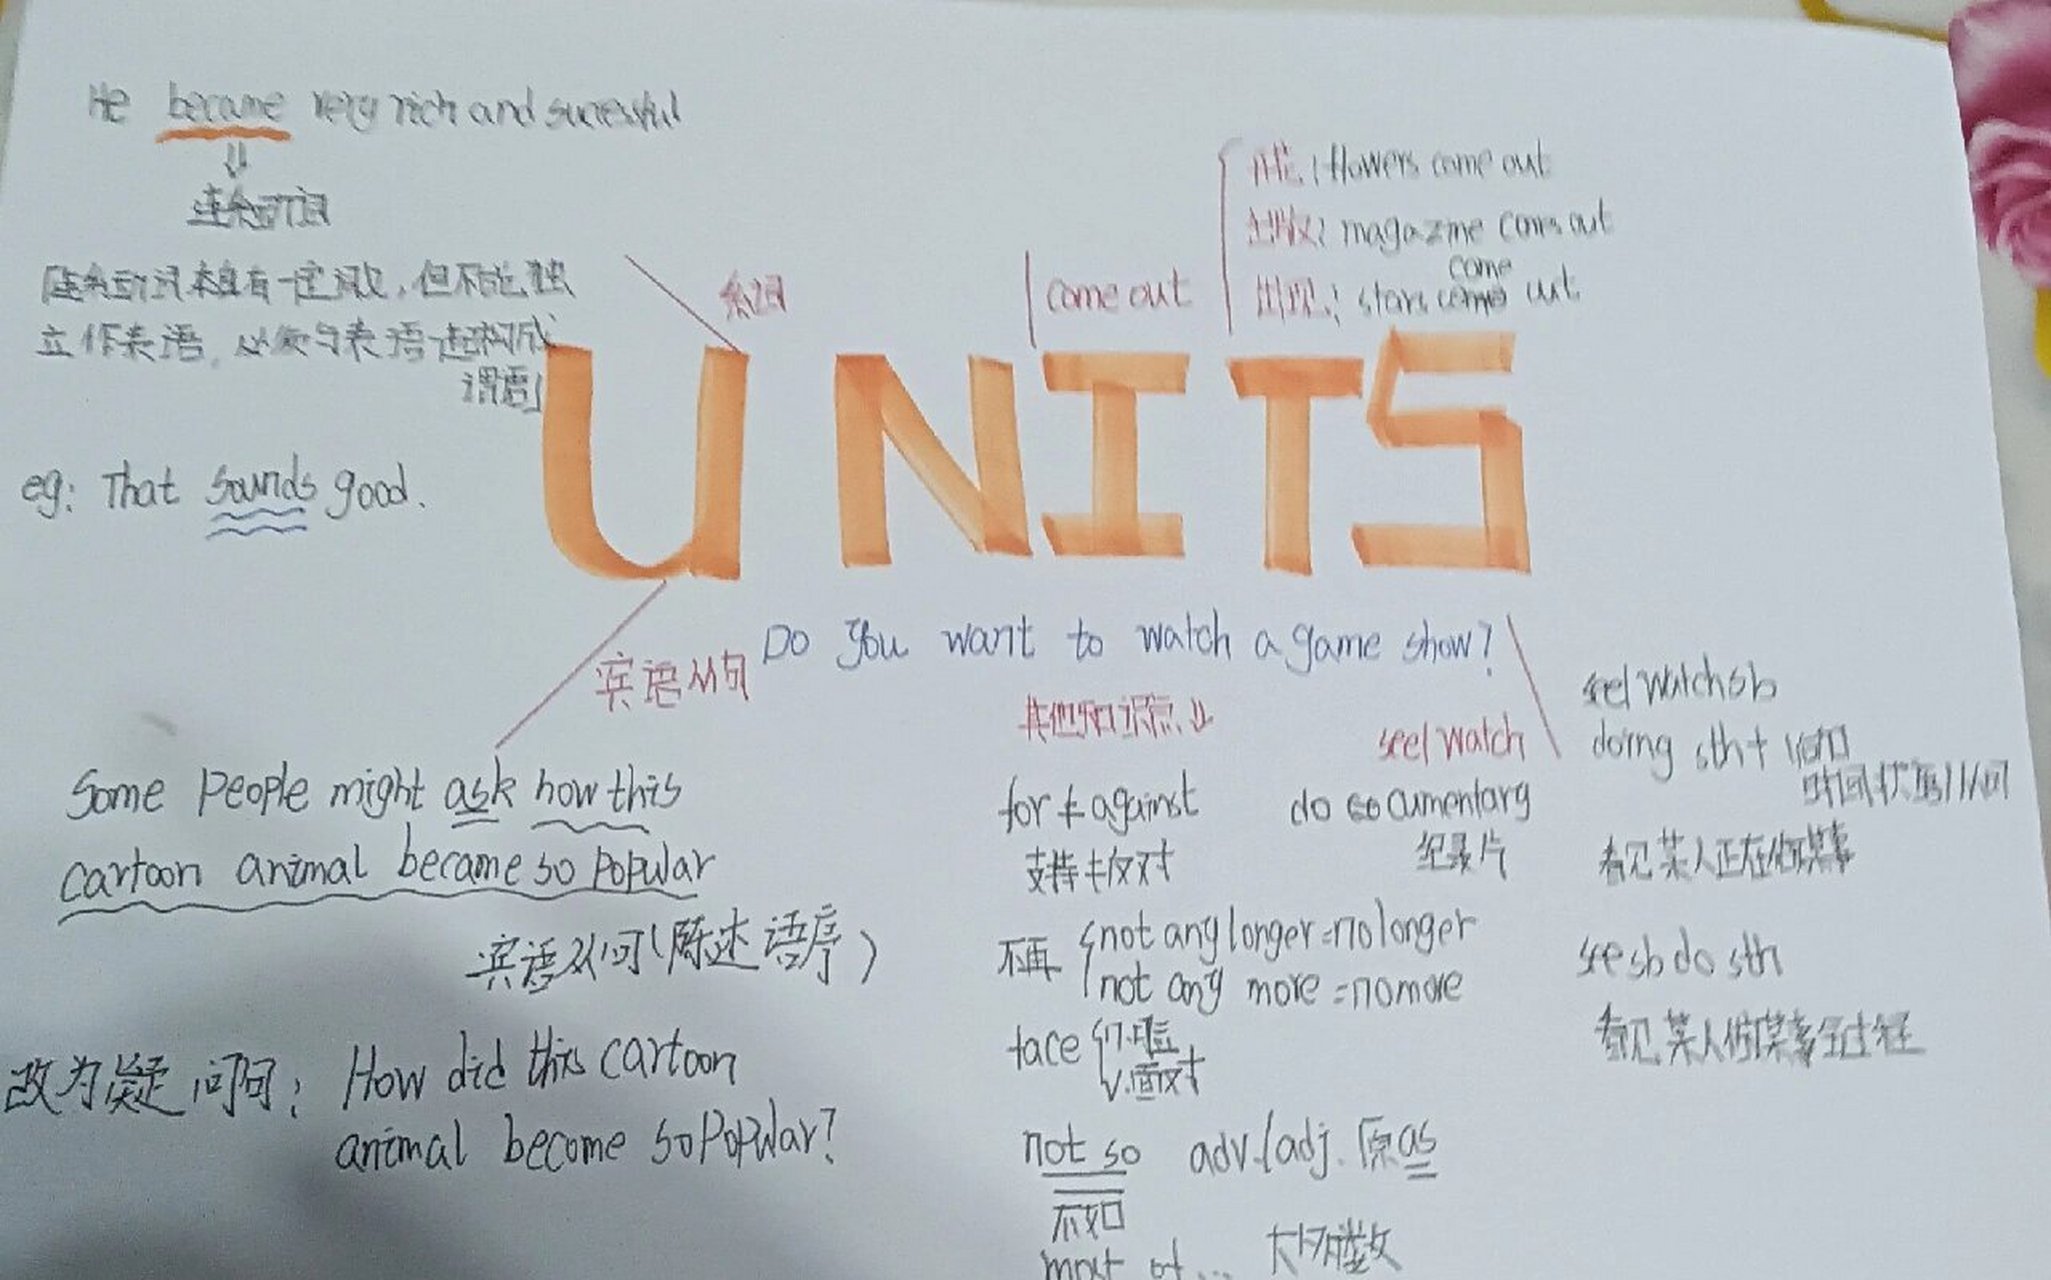 He became very rich and sucessful
连系动词
连系动词本身有一定词义，但不能独
立作表语，必须与表语一起构成
谓语
eg: That sounds good.
系动词
come out
开花：flowers come out
出版：magazine coms out
come
出现：stars come out
UNIT5
Do you want to watch a game show?
宾语从句
Some people might ask how this
cartoon animal became so popular
宾语从句(陈述语序)
改为疑问句：How did this cartoon
animal become so popular?
其他知识点
for ≠ against
支持 ≠ 反对
documentary
纪录片
不再 not any longer = no longer
not any more = no more
face n.脸
v.面对
not so adv./adj.原 as
不如
most of... 大多数
see/watch
see/watch sb
doing sth +
看见某人正在做某事
se sb do sth
看见某人做某事全过程